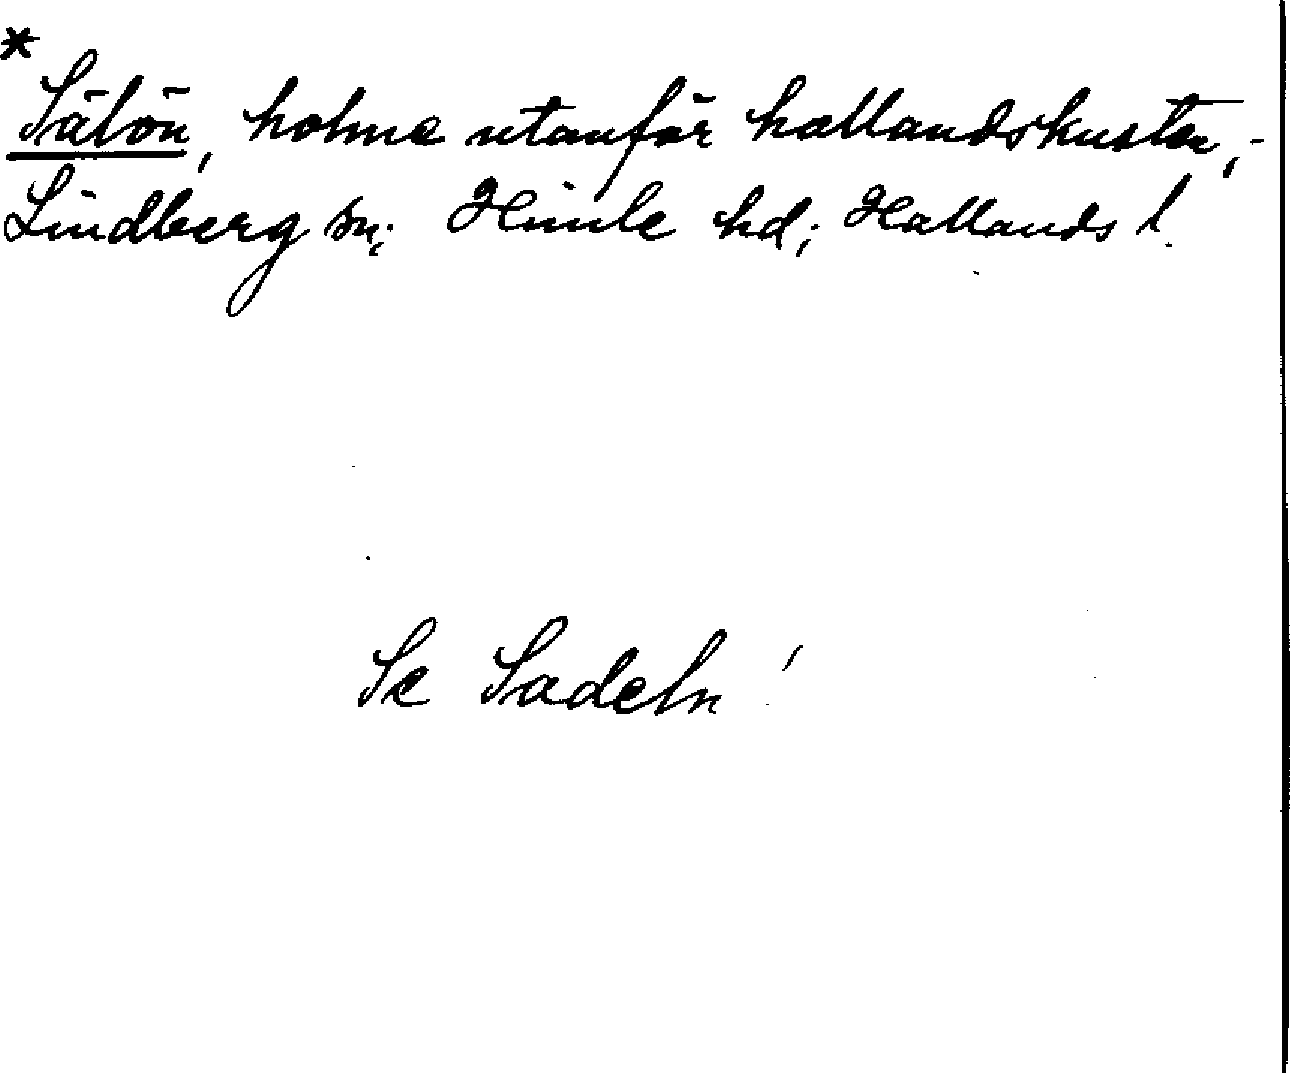 *
Sälön, holme utanför hallandskusten,-
Lindberg sn; Himle hd; Hallands l.
Se Sadeln!